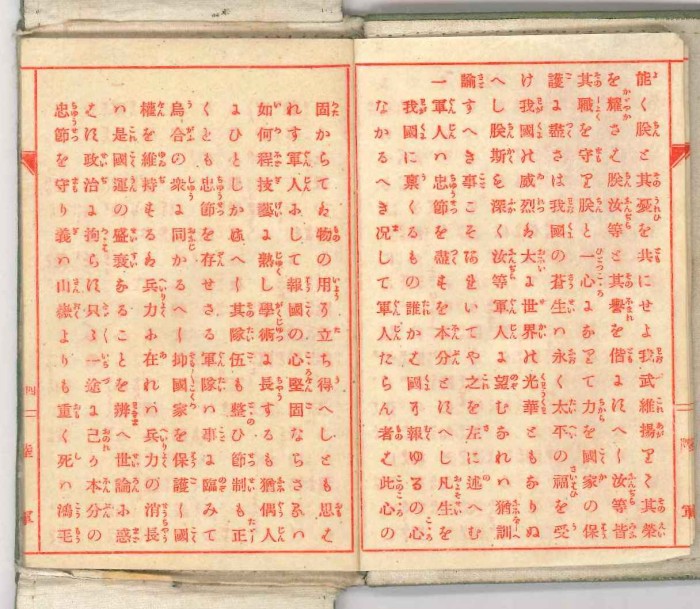 能く朕と其憂を共にせよ我武維揚りて其榮
を耀さは朕汝等と其譽を偕にすへし汝等皆
其職を守り朕と一心になりて力を國家の保
護に盡さは我國の蒼生は永く太平の福を受
け我國の威烈は大に世界の光華ともなりぬ
へし朕斯も深く汝等軍人に望むなれは猶訓
諭すへき事こそあれいてや之を左に述へむ
一軍人は忠節を盡すを本分とすへし凡生を
我國に稟くるもの誰かは國に報ゆるの心
なかるへき况して軍人たらん者は此心の
固からては物の用に立ち得へしとも思は
れす軍人にして報國の心堅固ならさるは
如何程技藝に熟し學術に長するも猶偶人
にひとしかるへし其隊伍も整ひ節制も正
くとも忠節を存せさる軍隊は事に臨みて
烏合の衆に同かるへし抑國家を保護し國
權を維持するは兵力に在れは兵力の消長
は是國運の盛衰なることを辨へ世論に惑
はす政治に拘らす只々一途に己か本分の
忠節を守り義は山嶽よりも重く死は鴻毛